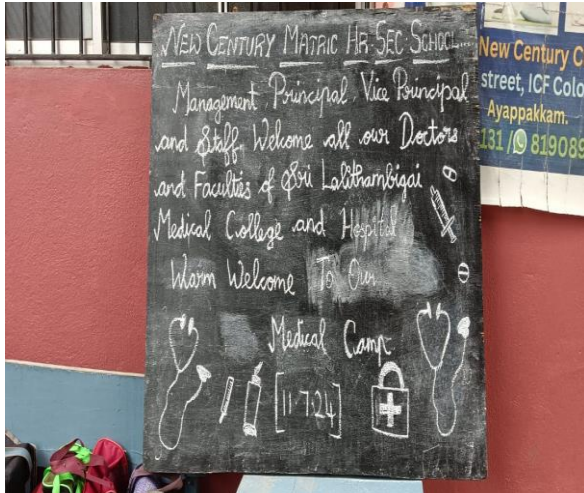 NEW CENTURY MATRIC HR-SEC SCHOOL...
Management, Principal, Vice Principal
and Staff, Welcome all our Doctors
and Faculties of Sri Lalithambigai
Medical College and Hospital
Warm Welcome To Our
Medical Camp
[11-7-24]
New Century C
street, ICF Colo
Ayappakkam.
131 / 819089